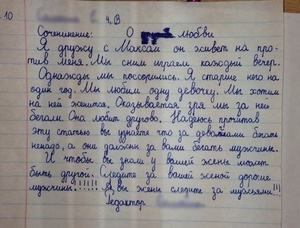 10
4 В
Сочинение: О любви
Я дружу с Максом он живет на про-
тив меня. Мы с ним играем каждый вечер.
Однажды мы посорились. Я старше него на
один год. Мы любим одну девочку. Мы хотим
на ней женится. Оказывается зря мы за ней
бегали. Она любит другова. Надеюсь прочитав
эту статью вы узнаете что за девочками бегать
ненадо, а они должны за вами бегать мужчины.
И чтобы вы знали у вашей жены может
быть другой. Следите за вашей женой дорогие
мужчины!!!!! А вы жены следите за мужьями!!!
Редактор